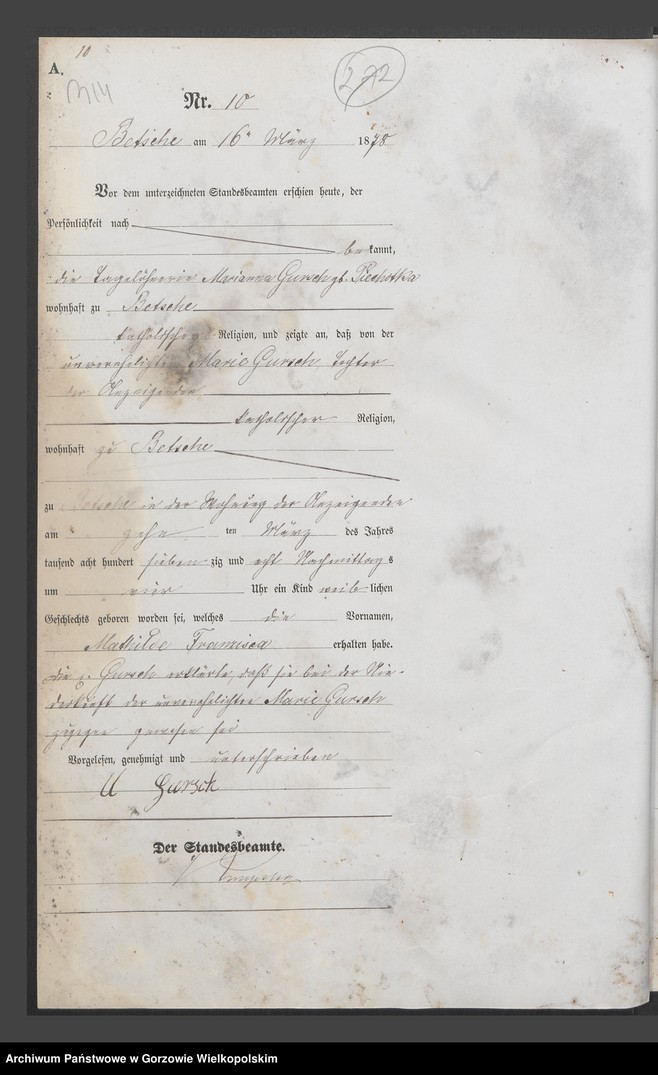 10
A.
272
Nr. 10
Betsche am 16ⁿ März 1878
Vor dem unterzeichneten Standesbeamten erschien heute, der
Persönlichkeit nach
bekannt,
die Tagelöhnerin Marianna Gursch gb. Piechotka
wohnhaft zu Betsche
katholischer Religion, und zeigte an, daß von der
unverehelichten Marie Gursch, Tochter
der Anzeigenden
katholischer Religion,
wohnhaft zu Betsche
zu Betsche in der Wohnung der Anzeigenden
am zehn ten März des Jahres
tausend acht hundert siebenzig und acht Nachmittags
um vier Uhr ein Kind weiblichen
Geschlechts geboren worden sei, welches die Vornamen,
Mathilde Franzisca erhalten habe.
die Gursch erklärte, daß sie bei der Nie-
derkunft der unverehelichten Marie Gursch
zugegen gewesen sei
Vorgelesen, genehmigt und unterschrieben
Gursch
Der Standesbeamte.
Archiwum Państwowe w Gorzowie Wielkopolskim